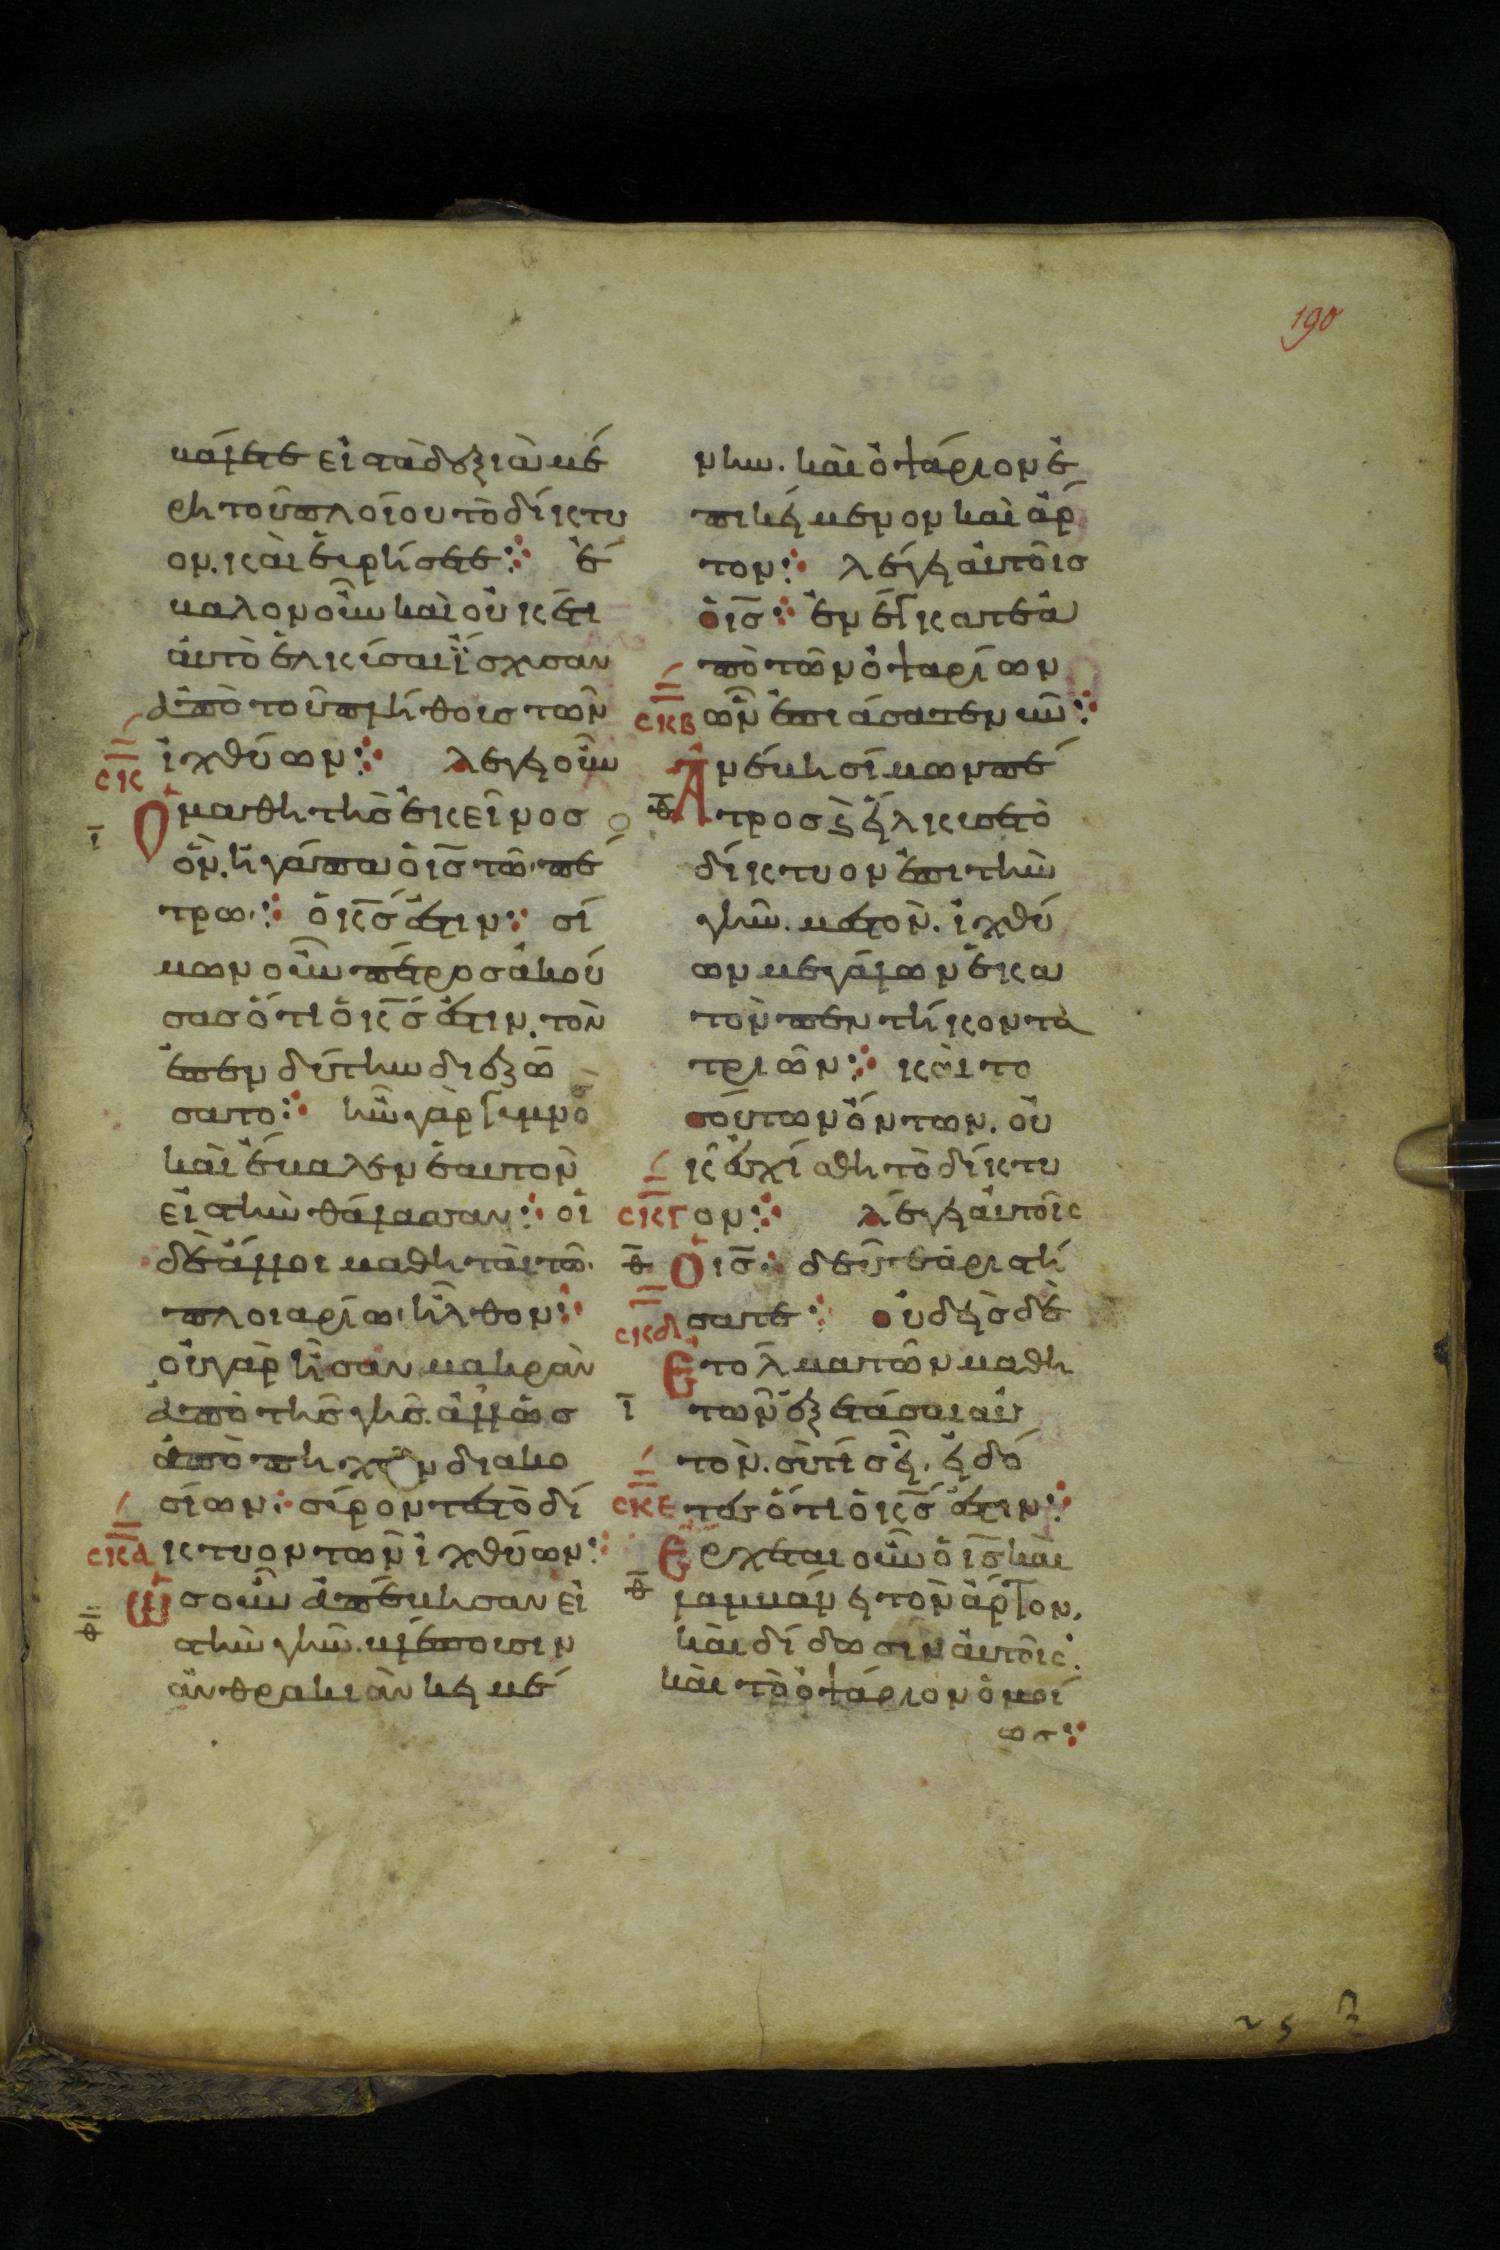 190
βάλετε εἰς τὰ δεξιὰ μέ
ρη τοῦ πλοίου τὸ δίκτυ
ον. καὶ εὑρήσετε⁘ ἔ
βαλον οὖν καὶ οὐκ ἔτι
αὐτὸ ἑλκύσαι ἴσχυσαν
ἀπὸ τοῦ πλήθους τῶν
ἰχθύων⁘ λέγει οὖν
σκ
Ὁ μαθητὴς ἐκεῖνος
ι
ὃν ἠγάπα ὁ ις τῶ πέ
τρω⁘ ὁ κς ἐστιν⁘ σί
μων οὖν πέτρος ἀκού
σας ὅτι ὁ κς ἐστιν. τὸν
ἐπενδύτην διεζώ
σατο⁘ ἦν γὰρ γυμνὸ
καὶ ἔβαλεν ἑαυτὸν
εἰς τὴν θάλασσαν⁘ οἱ
δὲ ἄλλοι μαθηταὶ τῶ
πλοιαρίω ἦλθον⁘
οὐ γὰρ ἦσαν μακρὰν
ἀπὸ τῆς γῆς. ἀλλ' ὡς
ἀπὸ πηχῶν διακο
σίων⁘ σύροντες τὸ δί
σκα κτυον τῶν ἰχθύων⁘
Ὡς οὖν ἀπέβησαν εἰ
θ
ς τὴν γῆν. βλέπουσιν
ἀνθρακιὰν κειμέ
νην. καὶ ὀψάριον ἐ
πικείμενον καὶ ἄρ
τον⁘ λέγει αὐτοῖς
ὁ ις⁘ ἐνέγκατε ἀ
πὸ τῶν ὀψαρίων
σκβ ὧν ἐπιάσατε νῦν⁘
Ἀνέβη σίμων πέ
θ τρος καὶ εἵλκυσε τὸ
δίκτυον ἐπὶ τὴν
γῆν. μεστὸν. ἰχθύ
ων μεγάλων ἑκα
τὸν πεντήκοντα
τριῶν⁘ καὶ το
σούτων ὄντων. οὐ
κ ἐσχίσθη τὸ δίκτυ
σκγ ον⁘ λέγει αὐτοῖς
θ Ὁ ις⁘ δεῦτε ἀριστή
σκδ σατε⁘ οὐδεὶς δὲ
Ἐτόλμα τῶν μαθη
ι τῶν ἐξετάσαι αὐ
τὸν. σὺ τίς εἶ. εἰδό
σκε τες ὅτι ὁ κς ἐστιν⁘
Ἔρχεται οὖν ὁ ις καὶ
θ λαμβάνει τὸν ἄρτον.
καὶ δίδωσιν αὐτοῖς.
καὶ τὸ ὀψάριον ὁμοί
ως⁘